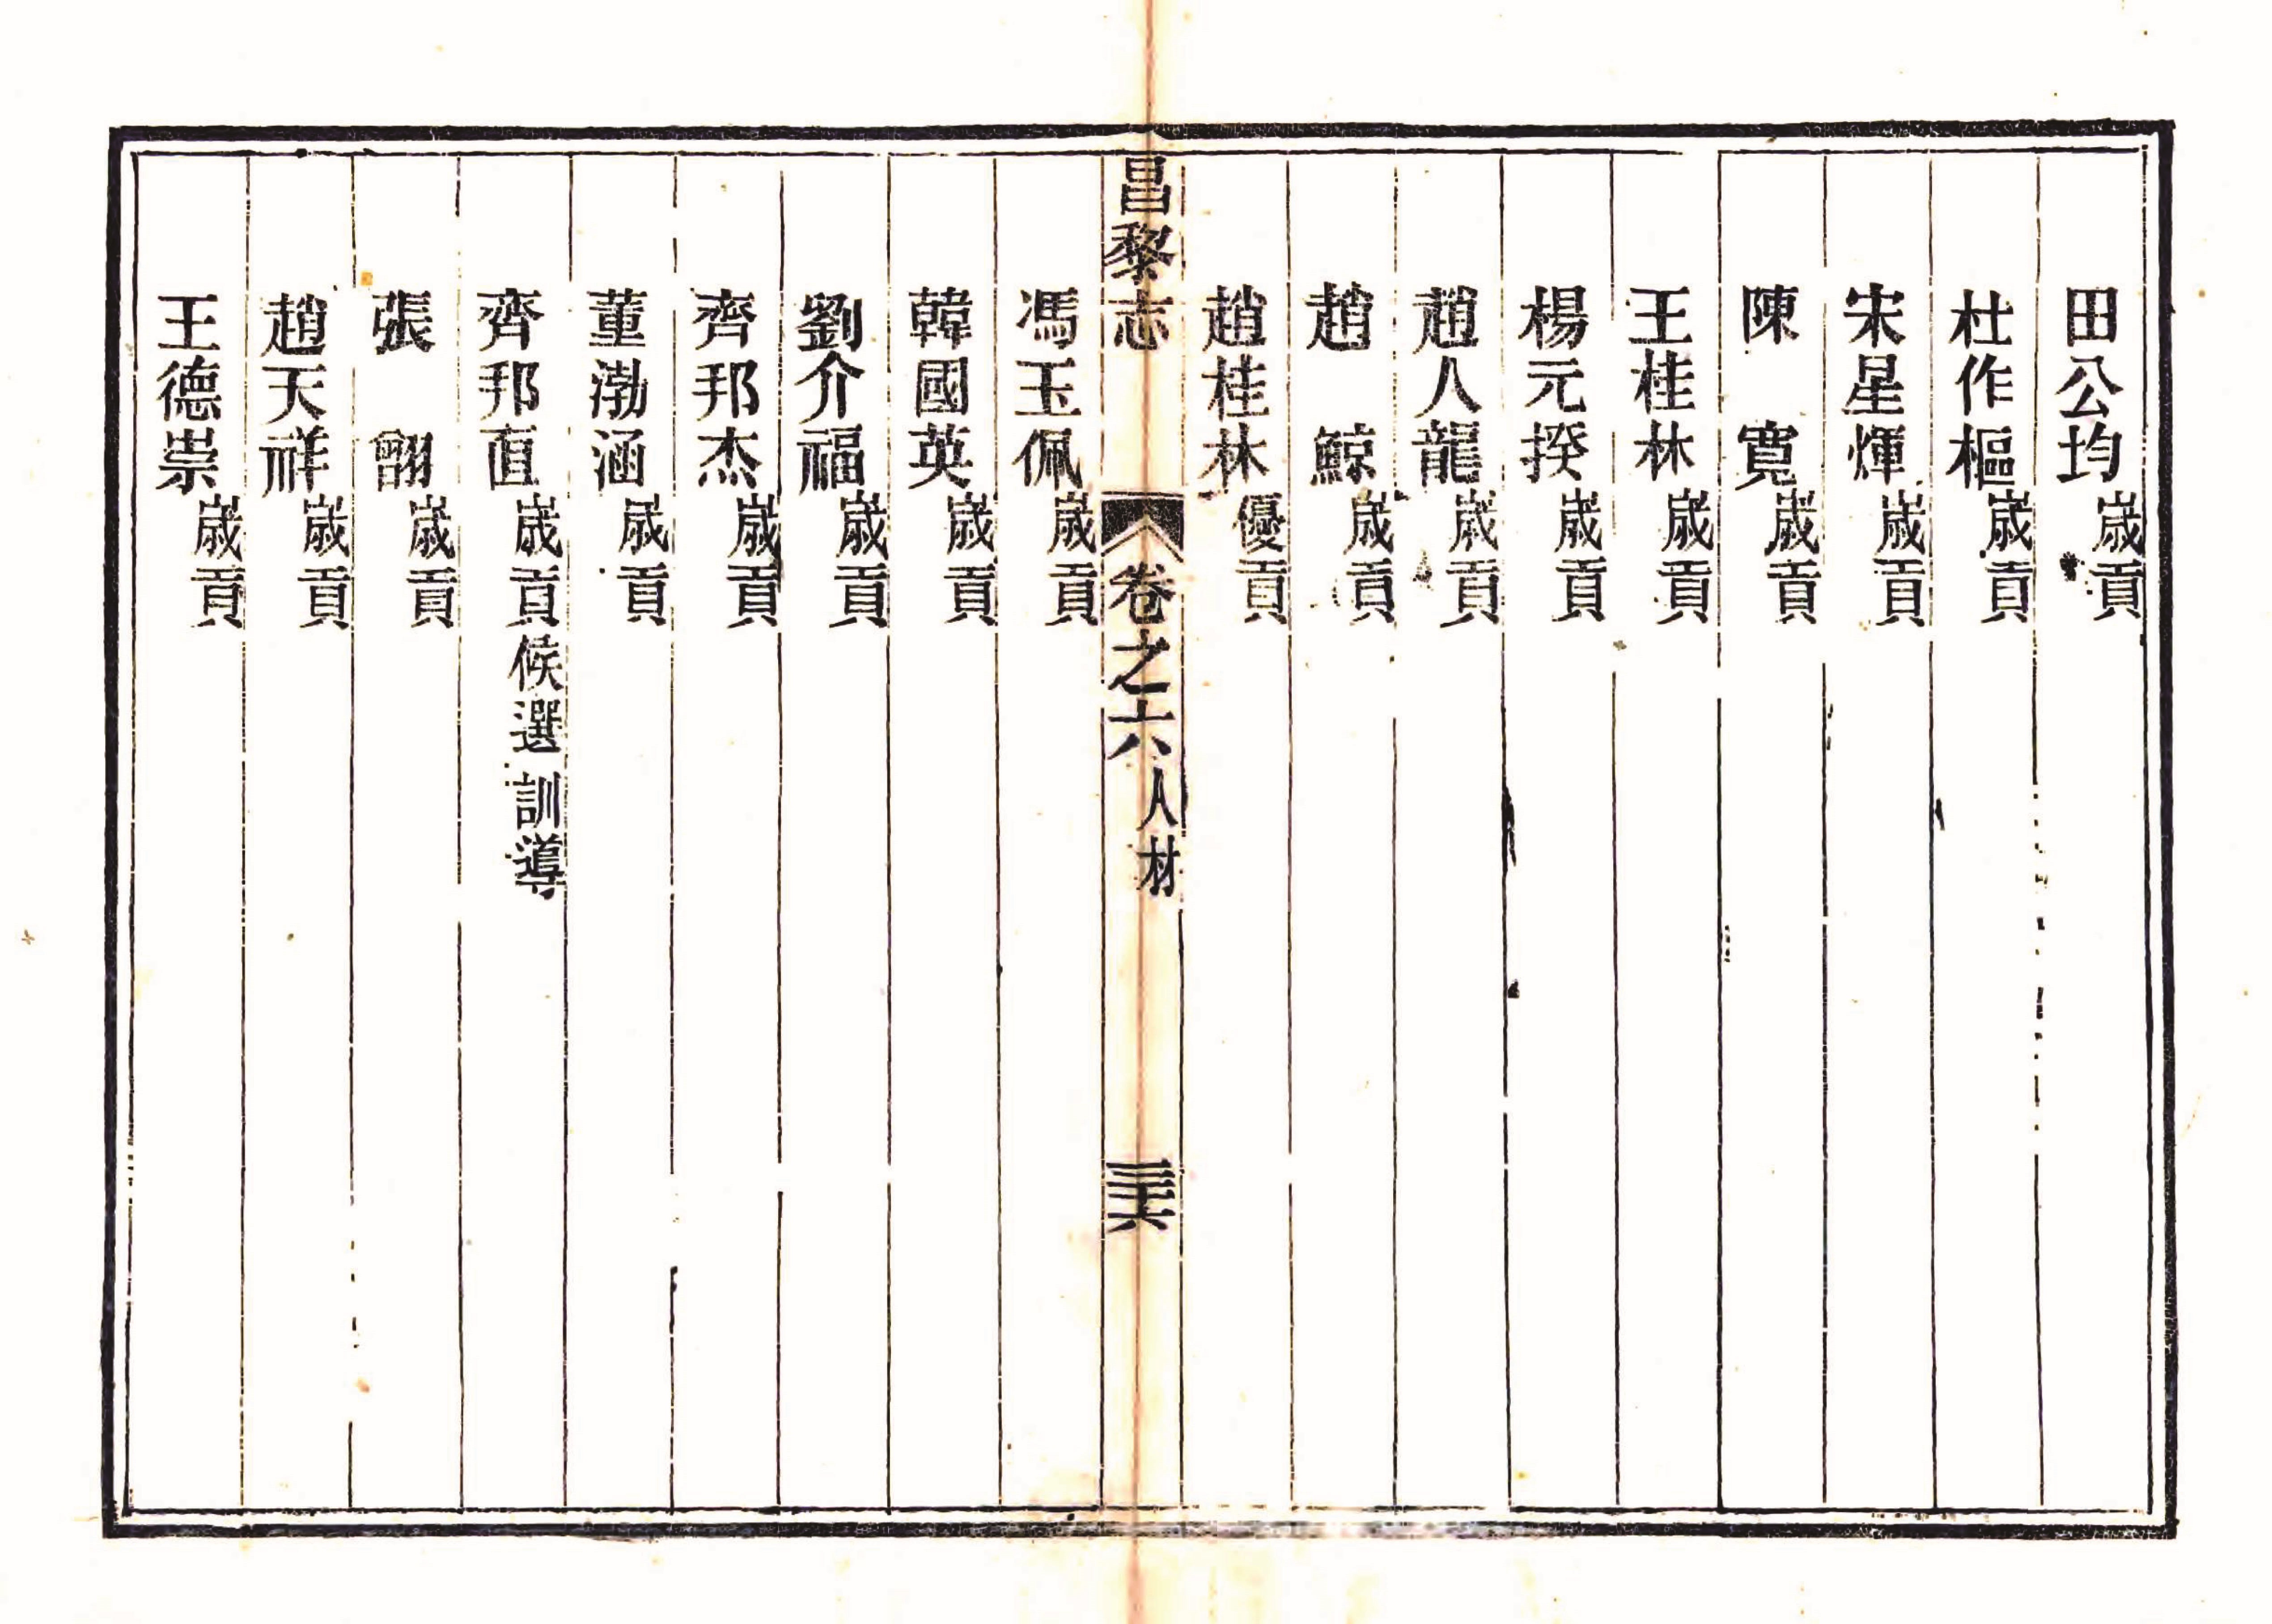 田公均歲貢
杜作樞歲貢
宋星煇歲貢
陳寬歲貢
王桂林歲貢
楊元揆歲貢
趙人龍歲貢
趙鯨歲貢
趙桂林優貢
昌黎志 卷之六 人材 三十六
馮玉佩歲貢
韓國英歲貢
劉介福歲貢
齊邦杰歲貢
董渤涵歲貢
齊邦直歲貢候選訓導
張翧歲貢
趙天祥歲貢
王德崇歲貢